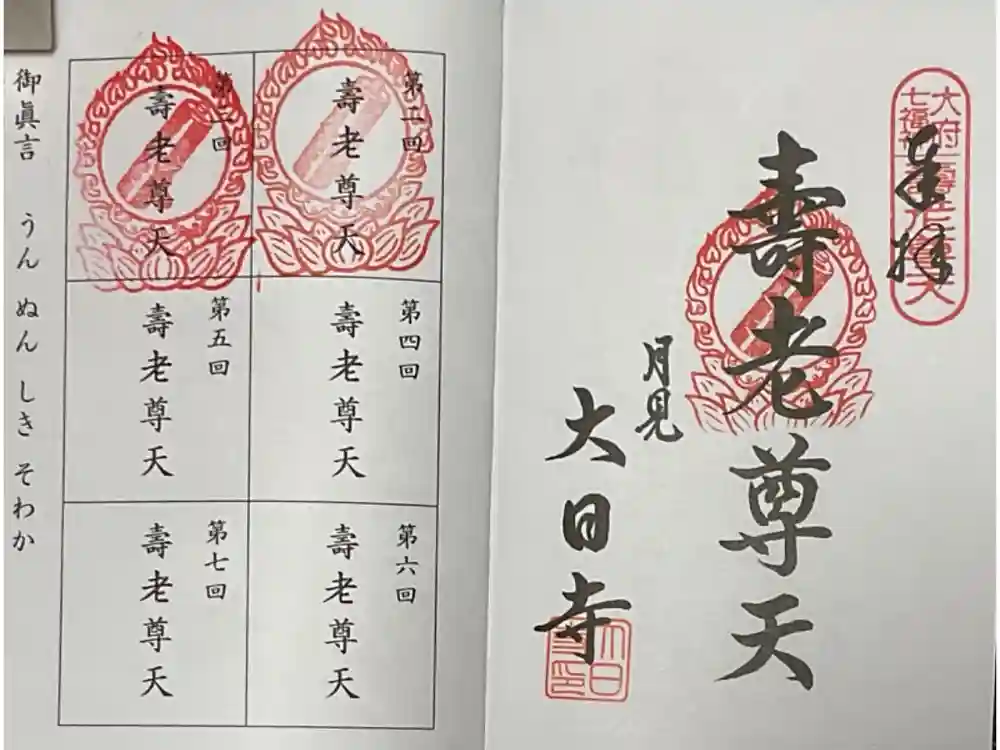 大府
七福神
奉拝
壽老尊天
月見
大日寺
第二回
壽老尊天
第三回
壽老尊天
第四回
壽老尊天
第五回
壽老尊天
第六回
壽老尊天
第七回
壽老尊天
御眞言 うん ぬん しき そわか